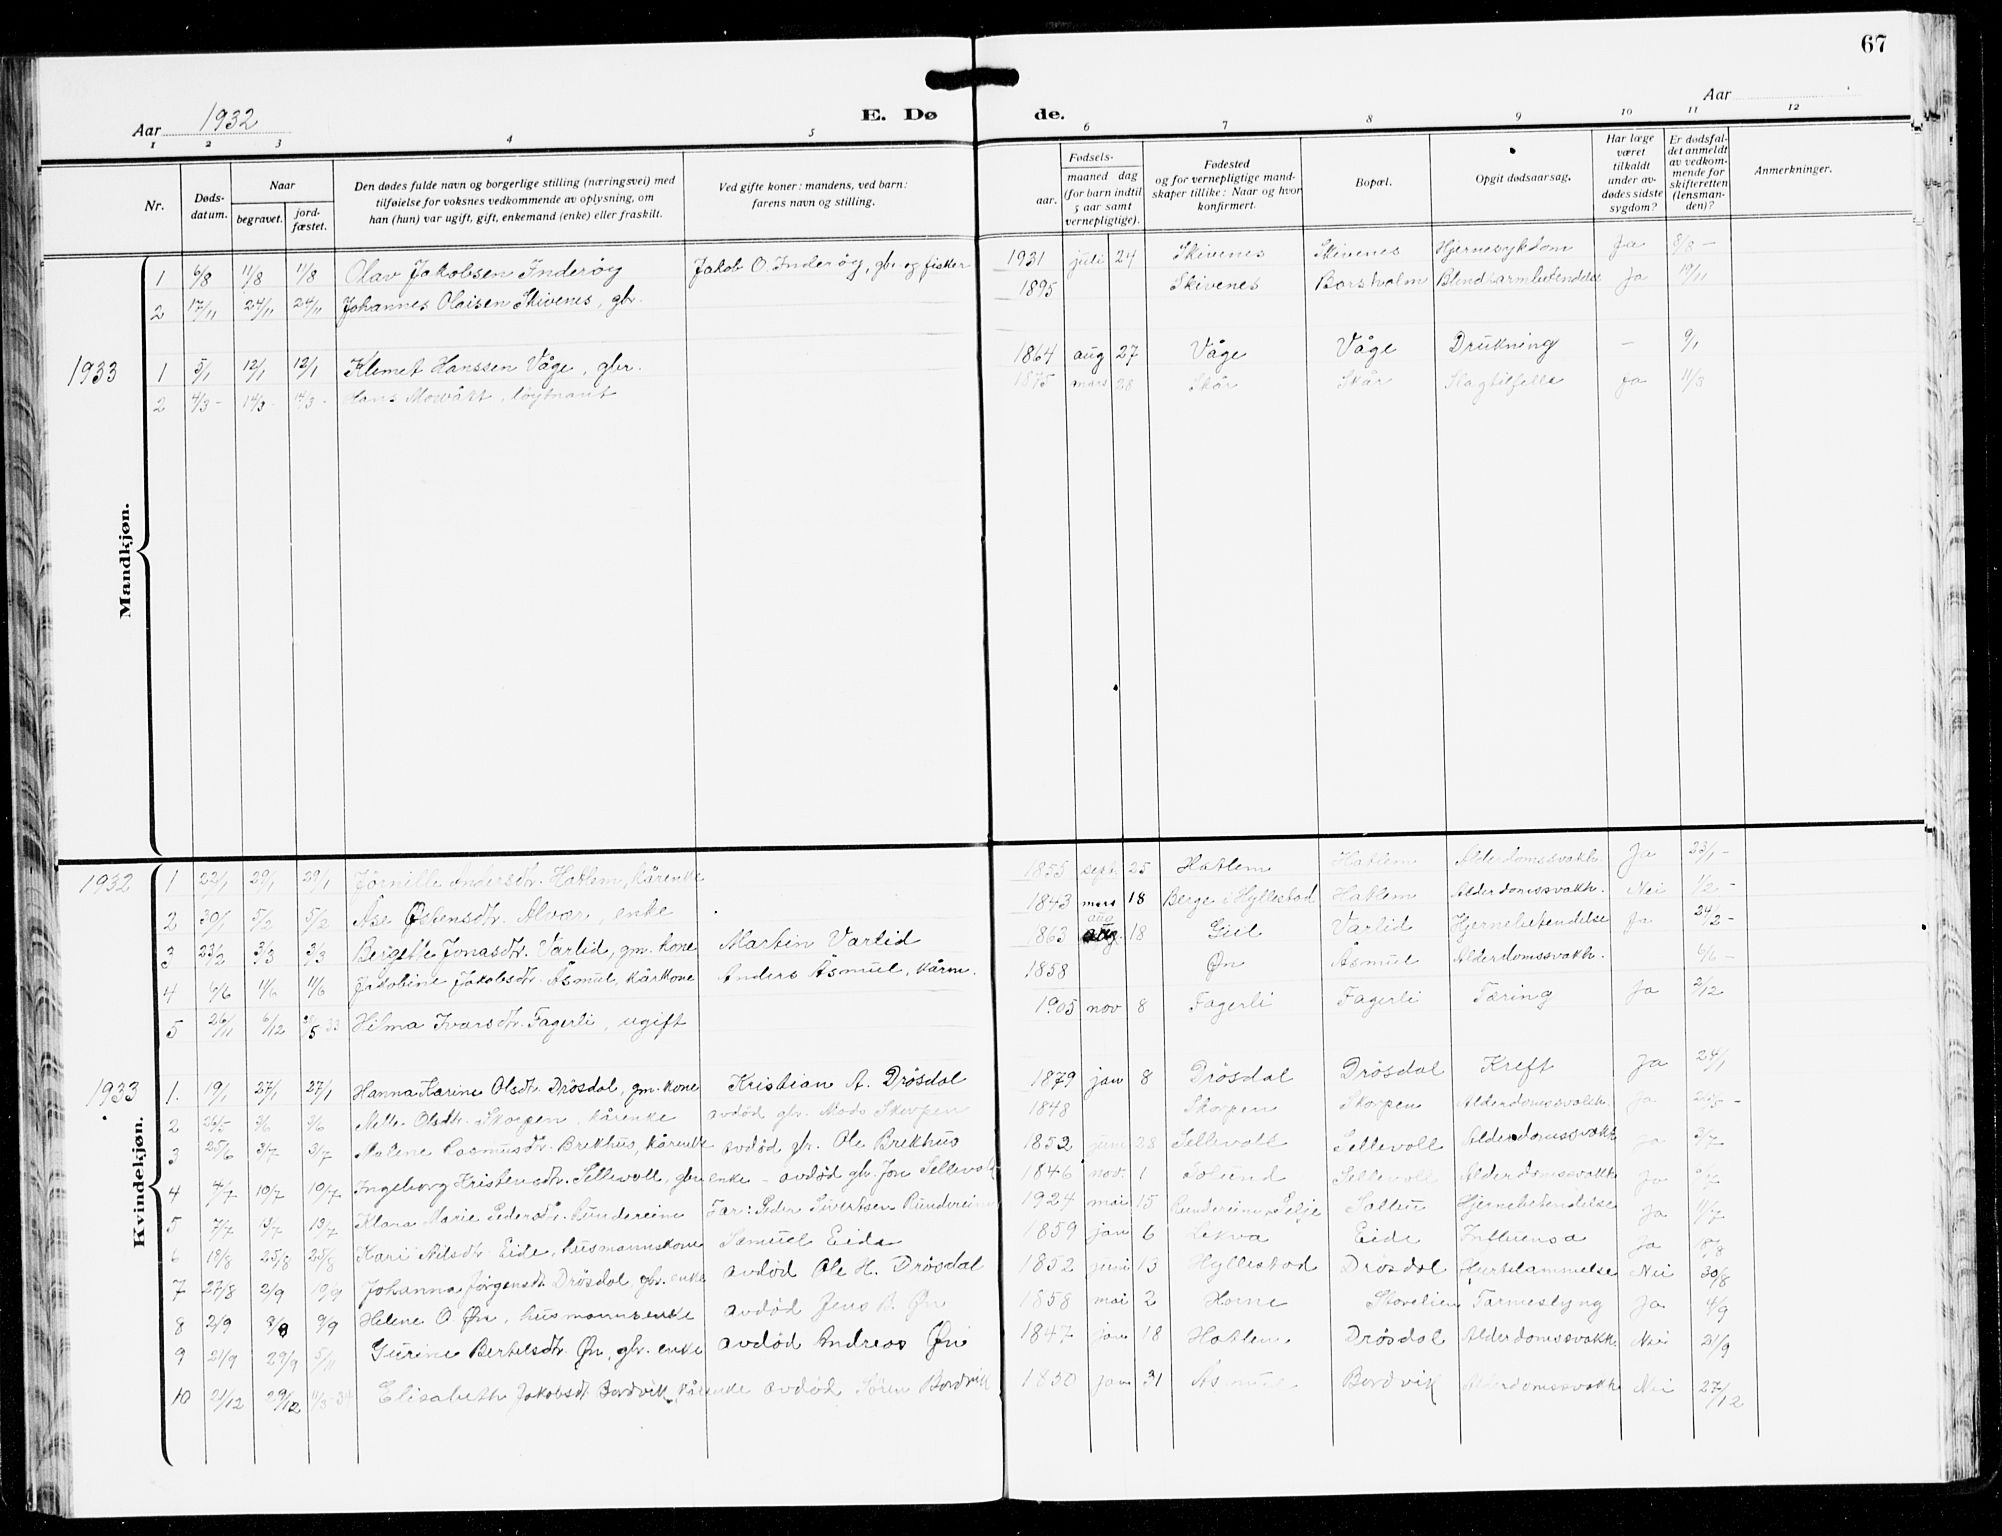 67
Aar 1932 E. Dø de. Aar
1 2 3 4 5 6 7 8 9 10 11 12
Nr. Døds-datum. Naar begravet. jord-fæstet. Den dødes fulde navn og borgerlige stilling (næringsvei) med tilføielse for voksnes vedkommende av oplysning, om han (hun) var ugift, gift, enkemand (enke) eller fraskilt. Ved gifte koner: mandens, ved barn: farens navn og stilling. Fødsels- aar. maaned dag (for barn indtil 5 aar samt vernepligtige). Fødested og for vernepligtige mand-skaper tillike: Naar og hvor konfirmert. Bopæl. Opgit dødsaarsag. Har læge været tilkaldt under av-dødes sidste sygdom? Er dødsfal-det anmeldt av vedkom-mende for skifteretten (lensman-den)? Anmerkninger.
Mandkjøn.
1 6/8 11/8 11/8 Olav Jakobsen Inderøy Jakob O. Inderøy, gbr. og fisker 1931 juli 24 Skivenes Skivenes Hjernesykdom Ja 8/8 –
2 17/11 24/11 24/11 Johannes Olaisen Skivenes, gbr. 1895 Skivenes Borsholm Blindtarmbetendelse Ja 19/11
1933 1 5/1 12/1 12/1 Klemet Hanssen Våge, gbr. 1864 aug 27 Våge Våge Drukning – 9/1
2 4/3 – 14/3 – 14/3 – Hans Mowått, løytnant 1875 mars 28 Skår Skår Slagtilfelle Ja 11/3
Kvindekjøn.
1932 1 22/1 29/1 29/1 Andersdtr. Hatlem, kårenke 1855 sept. 25 Hatlem Hatlem Alderdomssvakh. Ja 23/1 –
2 30/1 5/2 5/2 Åse Østensdtr. Alvær, enke 1843 mars 18 Berge i Hyllestad Hatlem Alderdomssvakh. Nei 1/2 –
3 23/2 3/3 3/3 Bergitte Jonasdtr. Varlid, gm. kone Martin Varlid 1863 aug 18 Giil Varlid Hjernebetendelse Ja 24/2 –
4 4/6 11/6 11/6 Jakobine Jakobsdtr. Åsmul, kårkone Anders Åsmul, kårm. 1858 Øn Åsmul Alderdomssvakh. 6/6 –
5 26/11 6/12 33 Hilma Ivarsdtr. Fagerli, ugift 1905 nov 8 Fagerli Fagerli Tæring Ja 2/12
1933 1. 19/1 27/1 27/1 Hanna Karine Olsdtr. Drösdal, gm. kone Kristian A. Drösdal 1879 jan 8 Drösdal Drösdal Kreft Ja 24/1
2 3/6 3/6 Mette Olsdtr. Skorpen, kårenke avdød gbr. Mads Skorpen 1848 Skorpen Skorpen Alderdomssvakh. Ja
3 25/6 3/7 3/7 Malene Rasmusdtr. Brekhus, kårenke avdød gbr. Ole Brekhus 1852 juni 28 Sellevoll Sellevoll Alderdomssvakh. Ja 3/7
4 4/7 10/7 10/7 Ingeborg Kristensdtr. Sellevoll, gbr. enke – avdød gbr. Jon Sellevoll 1846 nov. 1 Solund Sellevoll Alderdomssvakh. Ja
5 7/7 13/7 13/7 Klara Marie Pedersdtr. Rundereim Far: Peder Sivertsen Rundereim 1924 mai 15 Rundereim, Selje Hjernebetendelse Ja 11/7
6 18/8 25/8 25/8 Kari Nilsdtr. Eide, husmannskone Samuel Eide 1859 jan 6 Lekva Eide Influensa Ja
7 27/8 2/9 19/9 Johanna Jørgensdtr. Drösdal, gbr. enke avdød Ole H. Drösdal 1852 juni 15 Hyllestad Drösdal Hjertelammelse Nei 30/8
8 2/9 9/9 Helene O. Øn, husmannsenke avdød Jens B. Øn 1858 mai 2 Tarmeslyng Ja 4/9
9 21/9 29/9 5/11 Gurine Bertelsdtr. Øn, gbr. enke avdød Andreas Øn 1847 jan 18 Hatlem Drösdal Alderdomssvakh. Nei 21/9
10 21/12 29/12 11/3 – 34 Elisabeth Jakobsdt. Bordvik, kårenke avdød Søren Bordvik 1850 jan 31 Åsmul Bordvik Alderdomssvakh Nei 27/12